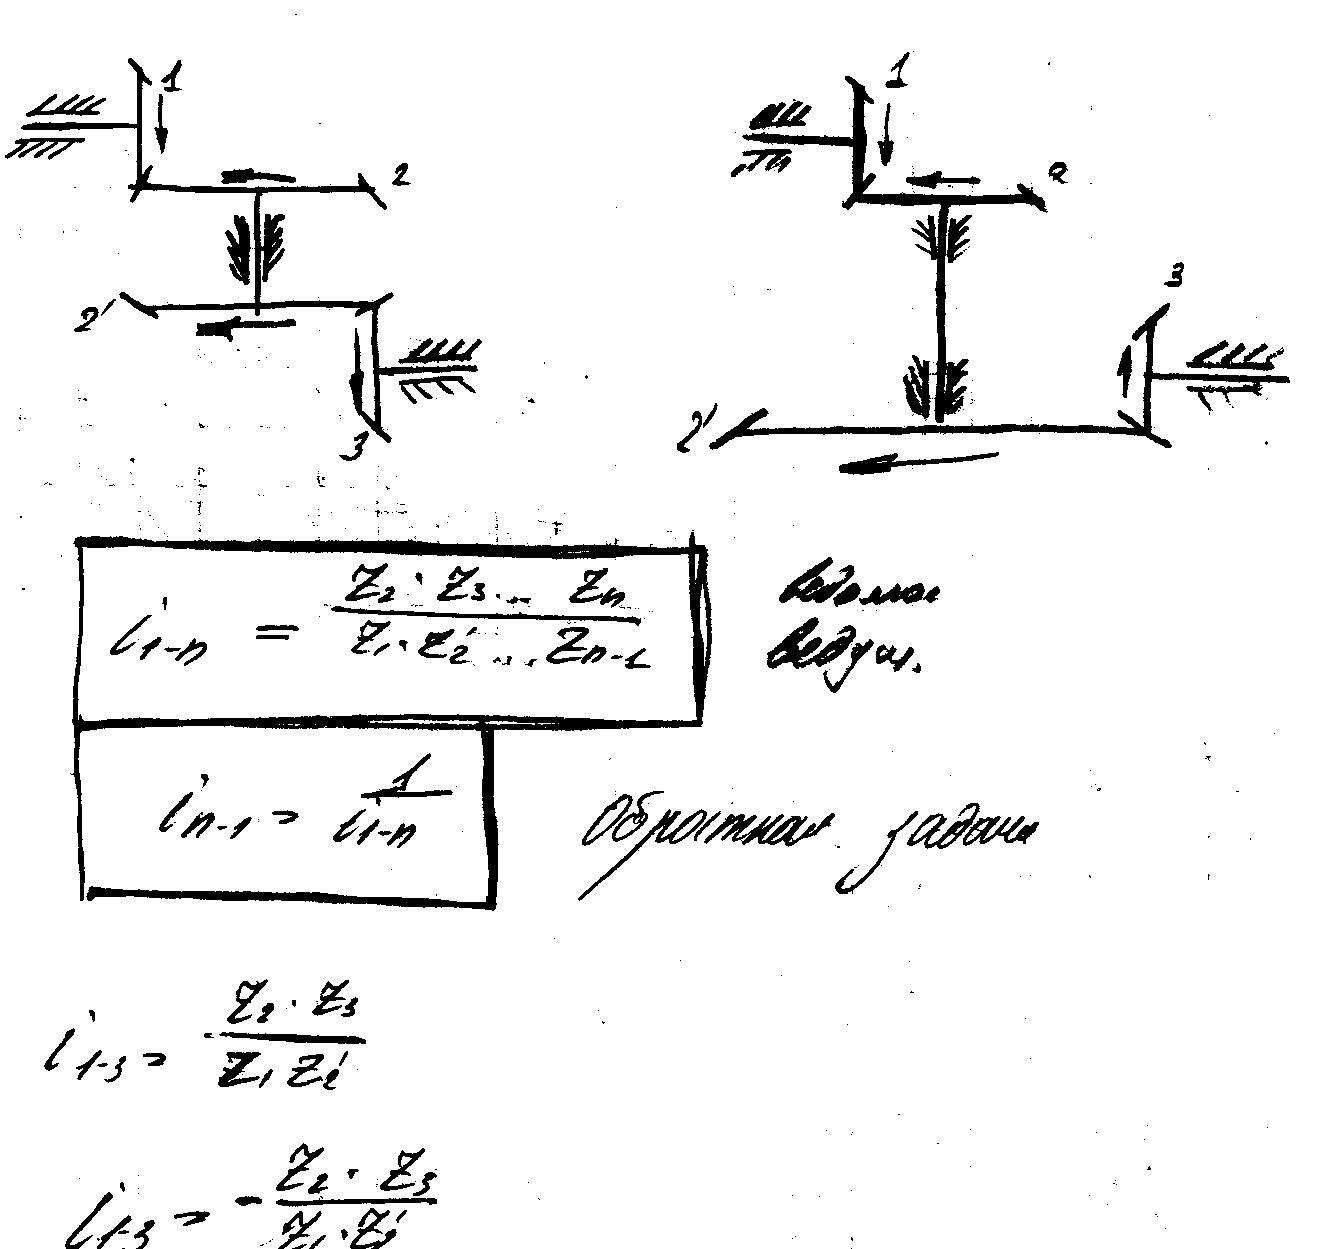 1
2
2'
3
1
2
3
2'
i₁₋ₙ = (Z₂ · Z₃ ... Zₙ) / (Z₁ · Z₂' ... Zₙ₋₁)
ведомое
ведущ.
iₙ₋₁ = 1 / i₁₋ₙ
Обратная задача
i₁₋₃ = (Z₂ · Z₃) / (Z₁ Z₂')
i₁₋₃ = - (Z₂ · Z₃) / (Z₁ · Z₂')